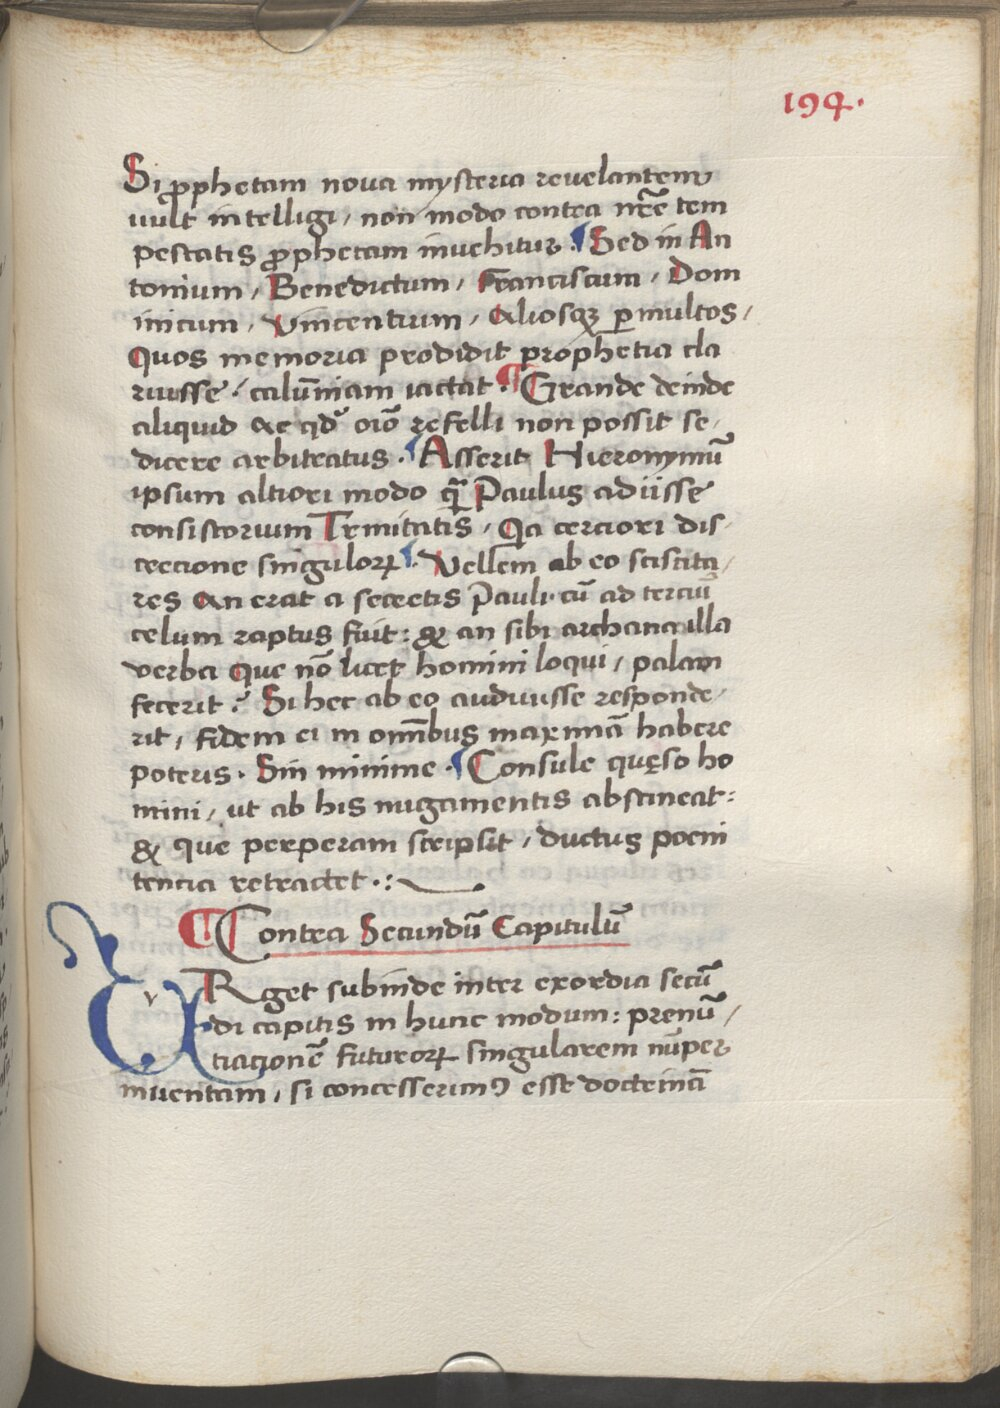 194.
Si ꝓphetam nova mysteria revelantem
vult intelligi / non modo contra nr̃e tem
pestatis ꝓphetam invehitur. ¶ Sed in An
tonium / Benedictum / Franciscum / Dom
inicum / Vincentium / Aliosqꝫ ꝑmultos /
Quos memoria prodidit prophetia cla
ruisse / calũniam iactat. ¶ Grande deinde
aliquid ac qđ oĩo refelli non possit se /
dicere arbitratus. ¶ Asserit Hieronymũ
ipsum altiori modo q̃ Paulus adiisse
consistorium Trinitatis / Qa cerciori dis /
crecione singuloꝝ ¶. Vellem ab eo sciscita /
res An erat a secretis Pauli. cũ ad terciũ
celum raptus fuit: & an sibi archana illa
verba que nõ licet homini loqui / palam
fecerit? Si hec ab eo audivisse responde /
rit / fidem ei in omĩbus maximã habere
poteris. Sin minime. ¶ Consule quęso ho
mini / ut ab his nugamentis abstineat:
& que perperam scripsit / ductus poeni
tencia retractet.:
¶ Contra Secundũ Capitulũ
URget subinde inter exordia secũ
di capitis in hunc modum: prenũ /
tiacionẽ futuroꝝ singularem nuper
inventam / si concesserimꝰ esse doctrinã